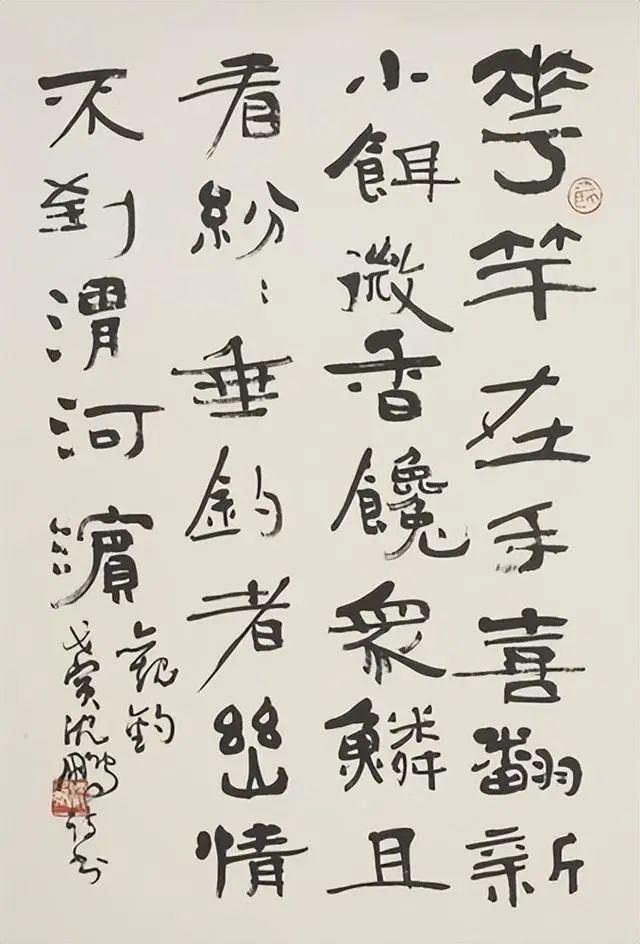 華竿在手喜翻新
小餌微香饞眾鱗且
看紛〻垂釣者幽情
不到渭河濱
觀釣
戊寅沈鵬詩書